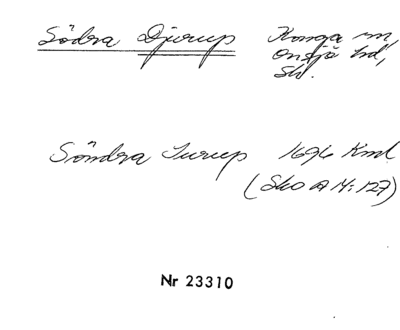 Södra Djurup Konga sn,
Onsjö hd,
Sk.
Söndra Jurup 1696 Kml
(Sko A IV: 127)
Nr 23310